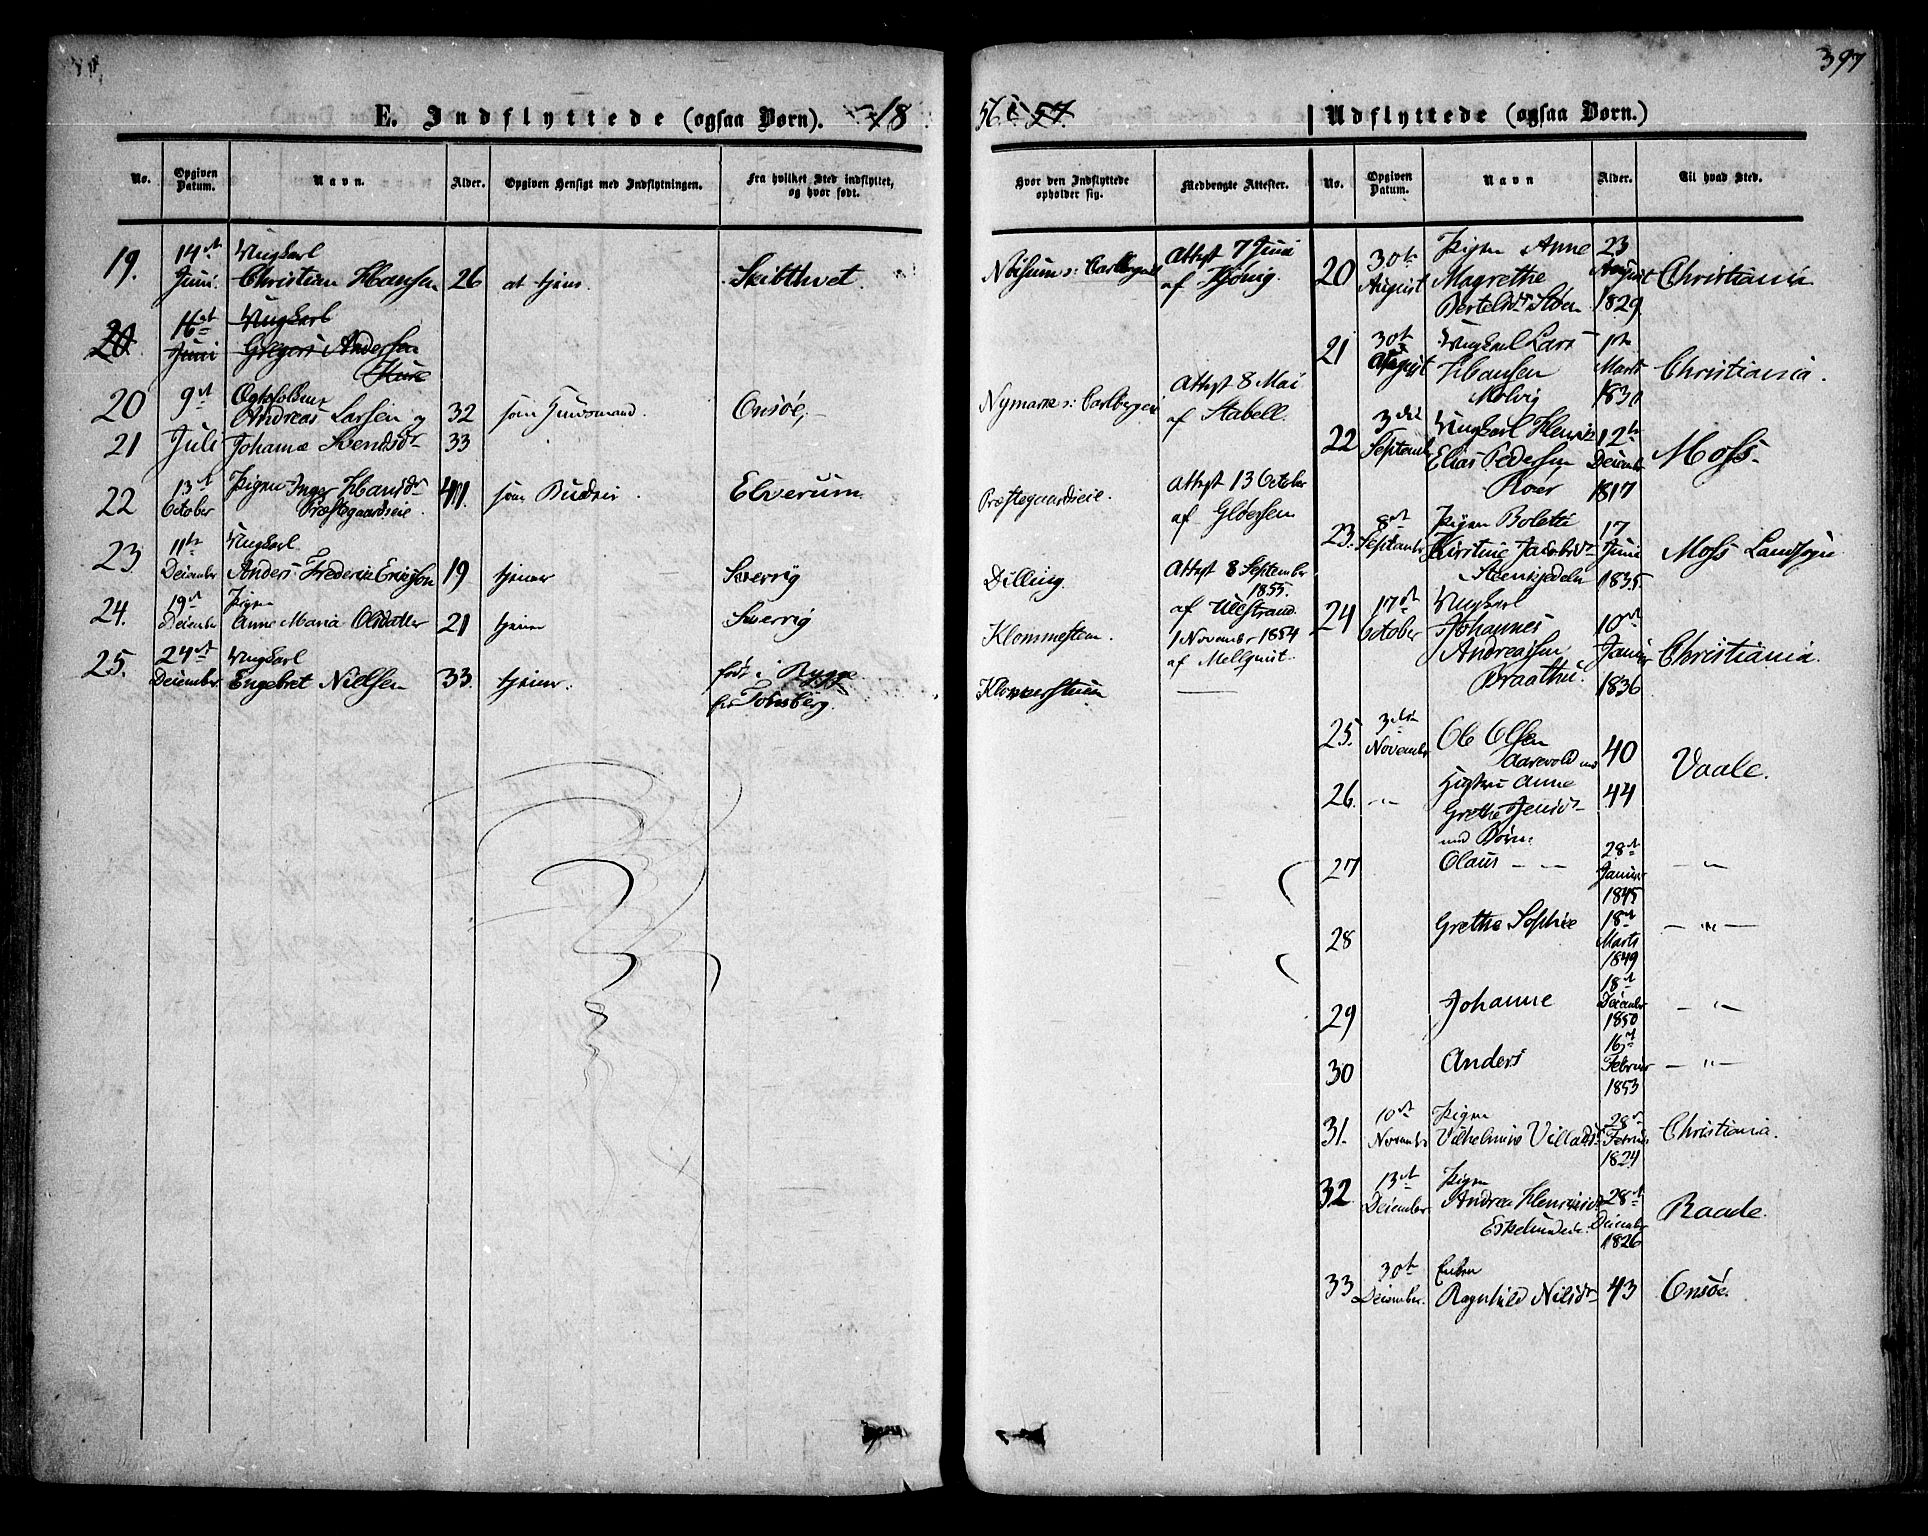 397
E. Indflyttede (ogsaa Børn). 18
56 57.
Udflyttede (ogsaa Børn.)
No. Opgiven Datum. Navn. Alder. Opgiven Hensigt med Indflytningen. Fra hvilket Sted indflyttet, og hvor født.
Hvor den Indflyttede opholder sig. Medbragte Attester.
19. 14de Juni Ungkarl Christian Hansen 26 at tjene. Skibthvet.
af Kjönig.
Attest 7 Juni
20. 16de Juni Ungkarl Gregers Andersen
20 9de Andreas Larsen og 32 som Huusmand. Onsøe,
Attest 8 Mai
af Stabell.
21 Juli Johanne Svendsdr 33
22 13de October Pigen Inger Hansdr Præstegaardseie. 41. Elverum.
Præstegaardseie. Attest 13 October
23 11te December Ungkarl Anders Frederik 19 tjener Sverrig
Dilling. Attest 8 September 1855.
24. 19de December Pigen Anne Maria Olsdatter 21 tjener Sverrig
1 November 1854
af Mellquist.
25. 24de December Ungkarl Engebret Nielsen 33. tjener. født i Rygge
fra Tønsberg.
No. Opgiven Datum. Navn Alder. Til hvad Sted.
20 30te August Pigen Anne Magrethe 23 August 1829 Christiania
21 30te August Ungkarl Lars Hansen Molvig 1te Marts 1830 Christiania.
22 3die September Ungkarl Henrik Elias Pedersen Roer 12te December 1817 Moss.
23. 8de September Pigen Bolette Kirstine Jacobsdr 17 Juni 1835. Moss Landsogn
24 17de October Ungkarl Johannes Andreassen Braathen. 10de Januar 1836 Christiania.
25. 3die November Ole Olsen 40 Vaale.
26. -"- Hustru Anne Grethe Jensdr 44
med Børn:
27 Olaus — — 28de Januar 1845 — "
28 Grethe Sophie 18de Marts 1849 — " —
29 Johanne 18de December 1850 — " —
30 Anders 16de Februar 1853 — " —
31. 10de November Pigen Vilhelmine 1824 Christiania.
32 13de December Pigen Andrea 28de December 1826 Raade.
33 30te December. Enken Ragnhild Nilsdr 43 Onsøe.